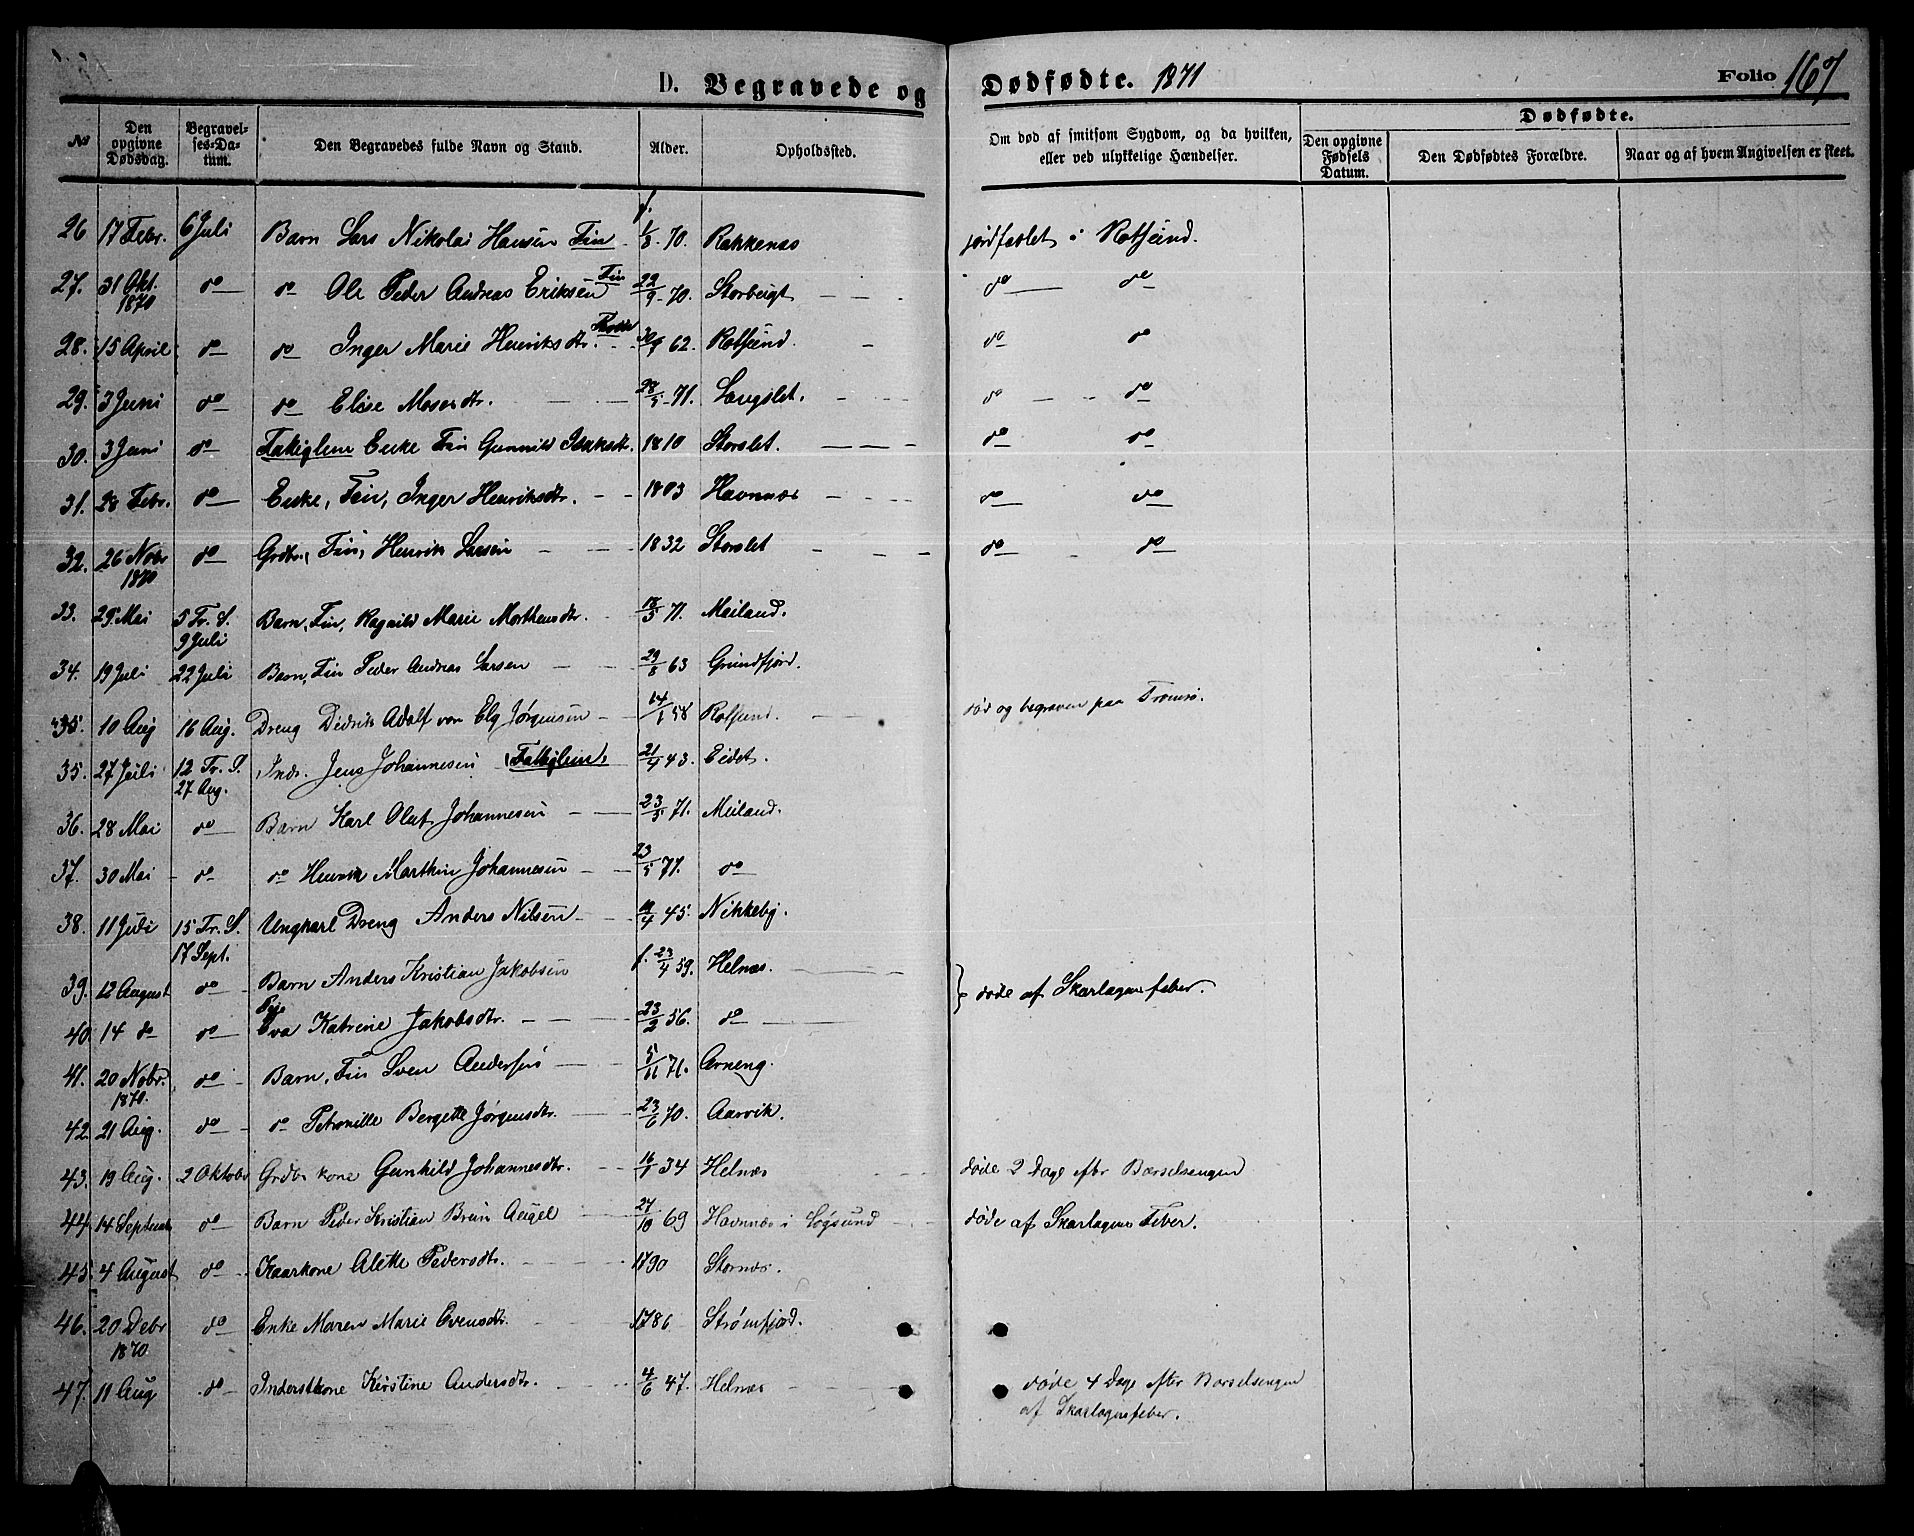 D. Begravede og Dødfødte. 1871 Folio 167
No
Den opgivne Dødsdag.
Begravelses-Datum.
Den Begravedes fulde Navn og Stand.
Alder.
Opholdssted.
Om død af smitsom Sygdom, og da hvilken, eller ved ulykkelige Hændelser.
Dødfødte.
Den opgivne Fødsels Datum.
Den Dødfødtes Forældre.
Naar og af hvem Angivelsen er skeet.
f.
26 17 Febr. 6 Juli Barn Lars Nikolai Hansen Fin 1/8 70. Rakkenæs jordfæstet i Rotsund.
27. 31 Okt. 1870 do do Ole Peder Andreas Eriksen Fin 22/9 70. Storbugt do do
28. 15 April do do Inger Marie Henriksdtr. 62. Rotsund. do do
29. 3 Juni do do Elise Mosesdtr. 28/5 71. Langslet. do do
30. 3 Juni do Fattiglem Enke Fin Gunnild Isaksdtr. 1810 Storslet. do do
31. 28 Febr. do Enke, Fin, Inger Henriksdtr. 1803 Havnnæs do do
32. 26 Nobr 1870 do Grdbr., Fin, Henrik Larsen 1832 Storslet do do
33. 29 Mai 5 Tr. S. 9 Juli Barn, Fin, Ragnild Marie Morthensdtr. 18/5 71. Meiland.
34. 19 Juli 22 Juli Barn, Fin Peder Andreas Larsen 29/8 63 Grundfjord.
35. 10 Aug 16 Aug. Dreng Didrik Adolf von Elg Jørgensen 14/1 58 Rotsund. død og begraven paa Tromsø.
35. 27 Juli 12 Tr. S. 27 Aug. Inds. Jens Johannesen (Fattiglem) 21/4 43. Eidet.
36. 28 Mai do Barn Karl Olaf Johannesen 23/5 71. Meiland.
37. 30 Mai do do Henrik Marthin Johannesen 23/5 71. do
38. 11 Juli 15 Tr. S. 17 Sept. Ungkarl Dreng Anders Nilsen 4 45. Nikkeby.
39. 12 August do Barn Anders Kristian Jakobsen f. 23/4 59. Helnæs. } døde af Skarlagensfeber.
40. 14 do do Pige Eva Katrine Jakobsdtr. 23/2 56. do
41. 20 Nobr. 1870. do Barn, Fin Sven Andersen 5/11 71. Arneng.
42. 21 Aug. do do Petronille Bergette Jørgensdtr. 23/6 70. Aarvik.
43. 19 Aug. 2 Oktober Grdbr kone Gunhild Johannesdtr. 16/1 34 Helnæs døde 2 Dage efter Barselsengen
44. 14 Septembr do Barn Peder Kristian Brun Angel 27/10 69 Havnnæs i Løgsund døde af Skarlagens Feber.
45. 4 August do Kaarkone Alette Pedersdtr. 1790 Stornæs.
46. 20 Debr 1870. do Enke Maren Marie Evensdtr. 1786 Strømfjord.
47. 11 Aug do Inderstkone Kirstine Andersdtr. 4/6 47. Helnæs døde 4 Dage efter Barselsengen
af Skarlagensfeber.